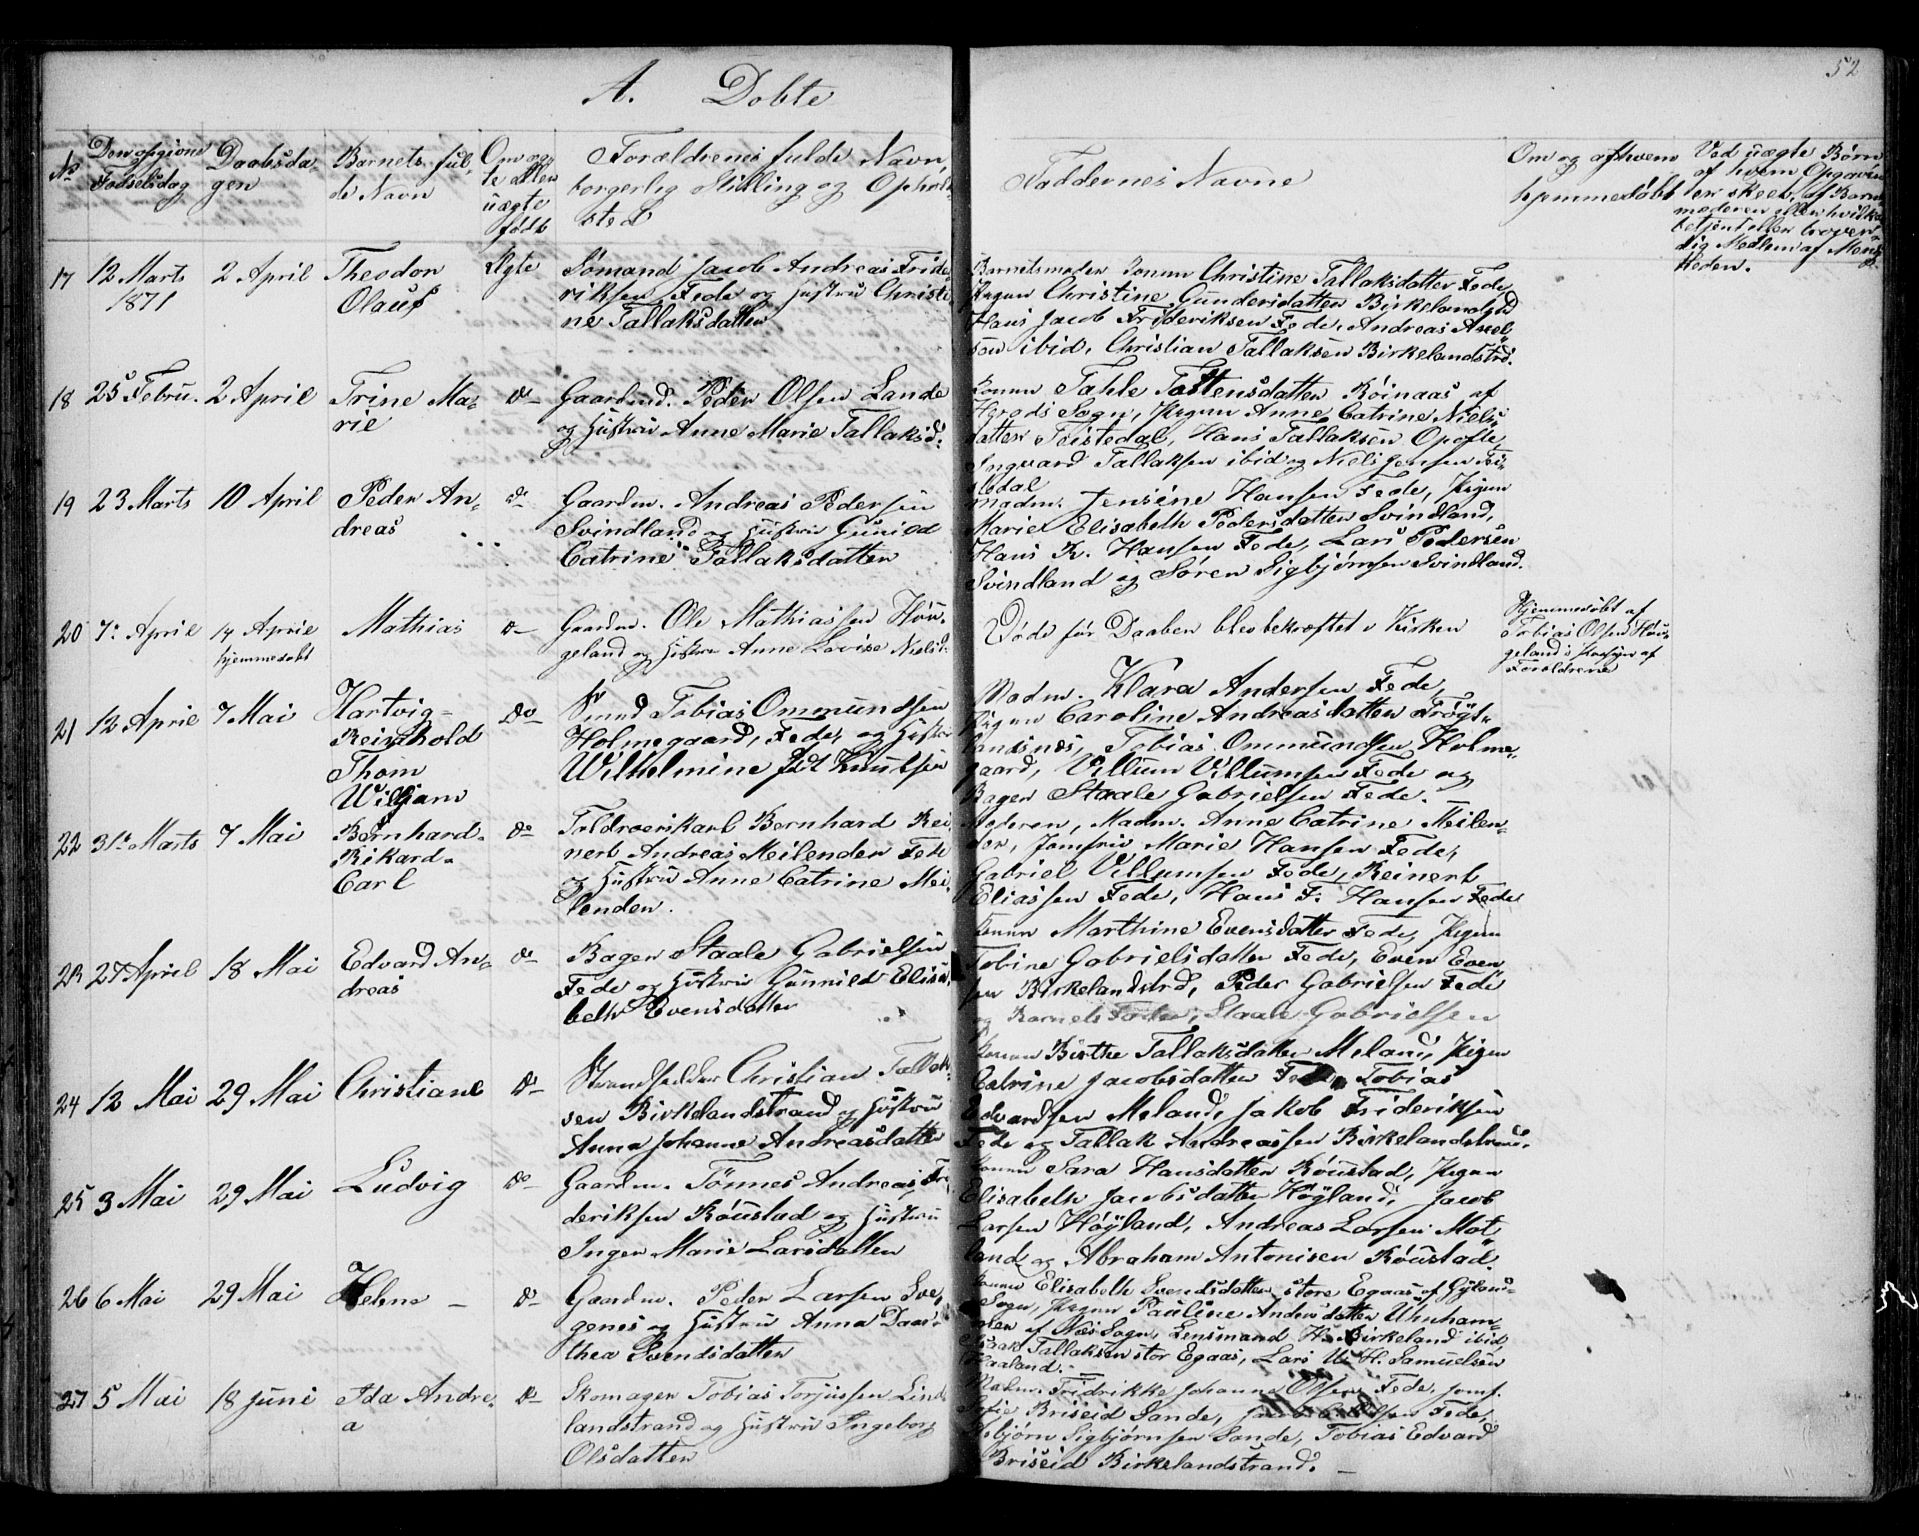 52
A. Døbte
No
Den opgivne
Fødselsdag
Daabsda-
gen
Barnets ful-
de Navn
Om æg-
te eller
uægte
født
Forældrenes fulde Navn
borgerlig Stilling og Ophold-
sted
Faddernes Navne
Om og af hvem
hjemmedøbt
Ved uægte Børn
af hvem Opgaven
er skeet, af Barne
moderen eller hvilken
betjent eller troven
dig Medlem af Menig
heden.
17 12 Marts
1871
2 April
Theodor
Olaus
Ægte
Sømand Jacob Andreas Fride-
riksen Fede og Hustru Christi-
ne Tallaksdatter
Barnets moder Konen Christine Tallaksdatter Fede
Pigen Christine Gundersdatter Birkelandstrd
Hans Jacob Frideriksen Fede, Andreas Axel-
sen ibid, Christian Tallaksen Birkelandstrd.
18 25 Febru. 2 April
Trine Ma-
rie
do
Gaardmd. Peder Olsen Lande
og Hustru Anne Marie Tallaksd.
Konen Tahle Tostensdatter Røinaas af
Herods Sogn, Pigen Anne Catrine Niels-
datter Teistedal, Hans Tallaksen Opofte,
Ingvard Tallaksen ibid og Niels Jensen Tei-
stedal
19 23 Marts 10 April
Peder An-
dreas
do
Gaardm. Andreas Pedersen
Svindland og Hustru Gunild
Catrine Tallaksdatter
Madm. Jensine Hansen Fede, Pigen
Marie Elisabeth Pedersdatter Svindland,
Hans K. Hansen Fede, Lars Pedersen
Svindland og Søren Sigbjørnsen Svindland.
20 7. April
14 April
hjemmedøbt
Mathias
do
Gaardm. Ole Mathiassen Høu-
geland og Hustru Anne Lovise Nielsd.
Døde før Daaben blev bekræftet i Kirken
Hjemmedøbt af
Tobias Olsen Høu-
geland i Paasyn af
Forældrene
21 12 April 7 Mai
Hartvig
Reinhold
Thom
William
do
Smed Tobias Ommundsen
Holmegaard, Fede, og Hustru
Wilhelmine født Knutsen
Madm. Klara Andersen Fede,
Pigen Caroline Andreasdatter Frøyt-
landsnæs, Tobias Ommundsen Holme-
gaard, Villum Villumsen Fede og
Bager Staale Gabrielsen Fede.
22 31. Marts 7 Mai
Bernhard
Rikard
Carl
do
Toldroerskarl Bernhard Rei-
nert Andreas Meilender Fede
og Hustru Anne Catrine Mei-
lender.
Moderen, Madm. Anne Catrine Meilen-
der, Jomfru Marie Hansen Fede,
Gabriel Villumsen Fede, Reinert
Eliassen Fede, Hans F. Hansen Fede
23 27 April 18 Mai
Edvard An-
dreas
do
Bager Staale Gabrielsen
Fede og Hustru Gunnild Elisa
beth Evensdatter
Konen Marthine Evensdatter Fede, Pigen
Tobine Gabrielsdatter Fede, Even Even
sen Birkelandstrd, Peder Gabrielsen Fede
og Barnets Fader, Staale Gabrielsen
24 12 Mai 29 Mai
Christiane
do
Strandsidder Christian Tallak-
sen Birkelandstrand og Hustru
Anna Johanne Andreasdatter
Konen Birthe Tallaksdatter Meland, Pigen
Catrine Jacobsdatter Fede, Tobias
Edvardsen Meland, Jakob Frideriksen
Fede og Tallak Andreassen Birkelandstrand.
25 3 Mai 29 Mai
Ludvig
do
Gaardm. Tønnes Andreas Fre
deriksen Røustad og Hustru
Inger Marie Larsdatter
Konen Sara Hansdatter Røustad, Pigen
Elisabeth Jacobsdatter Høyland, Jacob
Larsen Høyland, Andreas Larsen Mot-
land og Abraham Antonisen Røustad.
26 6 Mai 29 Mai
Helene –
do
Gaardm. Peder Larsen Sve-
genes og Hustru Anna Doro-
thea Svendsdatter
Konen Elisabeth Svendsdatter store Egaas af Gyland-
Sogn, Pigen Pauline Andersdatter Uhnham-
ren af Næs Sogn, Lensmand H. Birkeland ibid,
Isaak Tallaksen stor Egaas, Lars H. Samuelsen
Haaland.
27 5 Mai 18 Juni
Ida Andre-
a
do
Skomager Tobias Torjussen Lind
landstrand og Hustru Ingeborg
Olsdatter
Madm. Fridrikke Johanna Olsen Fede, Jomf.
Sofie Briseid Sande, Jacob Olsen Fede,
Asbjørn Sigbjørnsen Sande, Tobias Edvard
Briseid Birkelandstrand. –